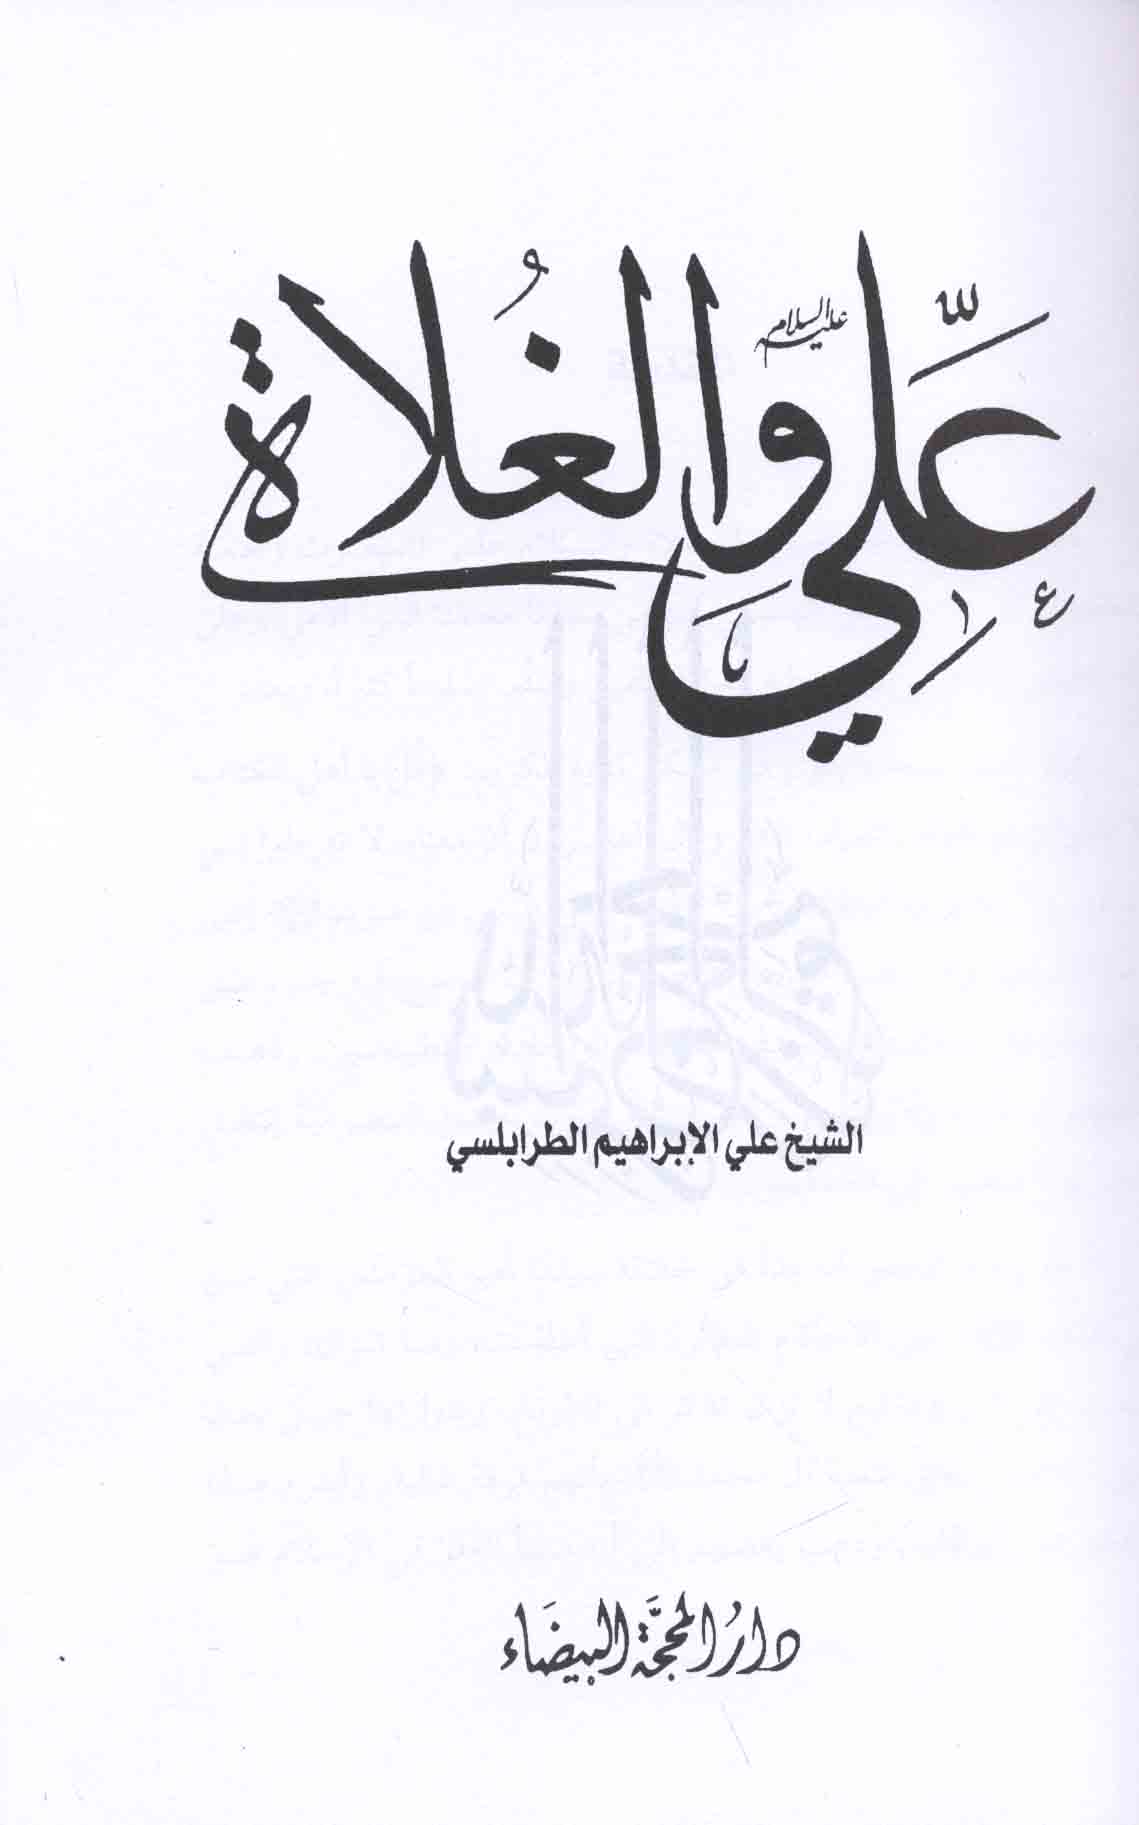 عليّ عليه السلام والغُلاة
الشيخ علي الإبراهيم الطرابلسي
دارُ المحجَّة البيضَاء